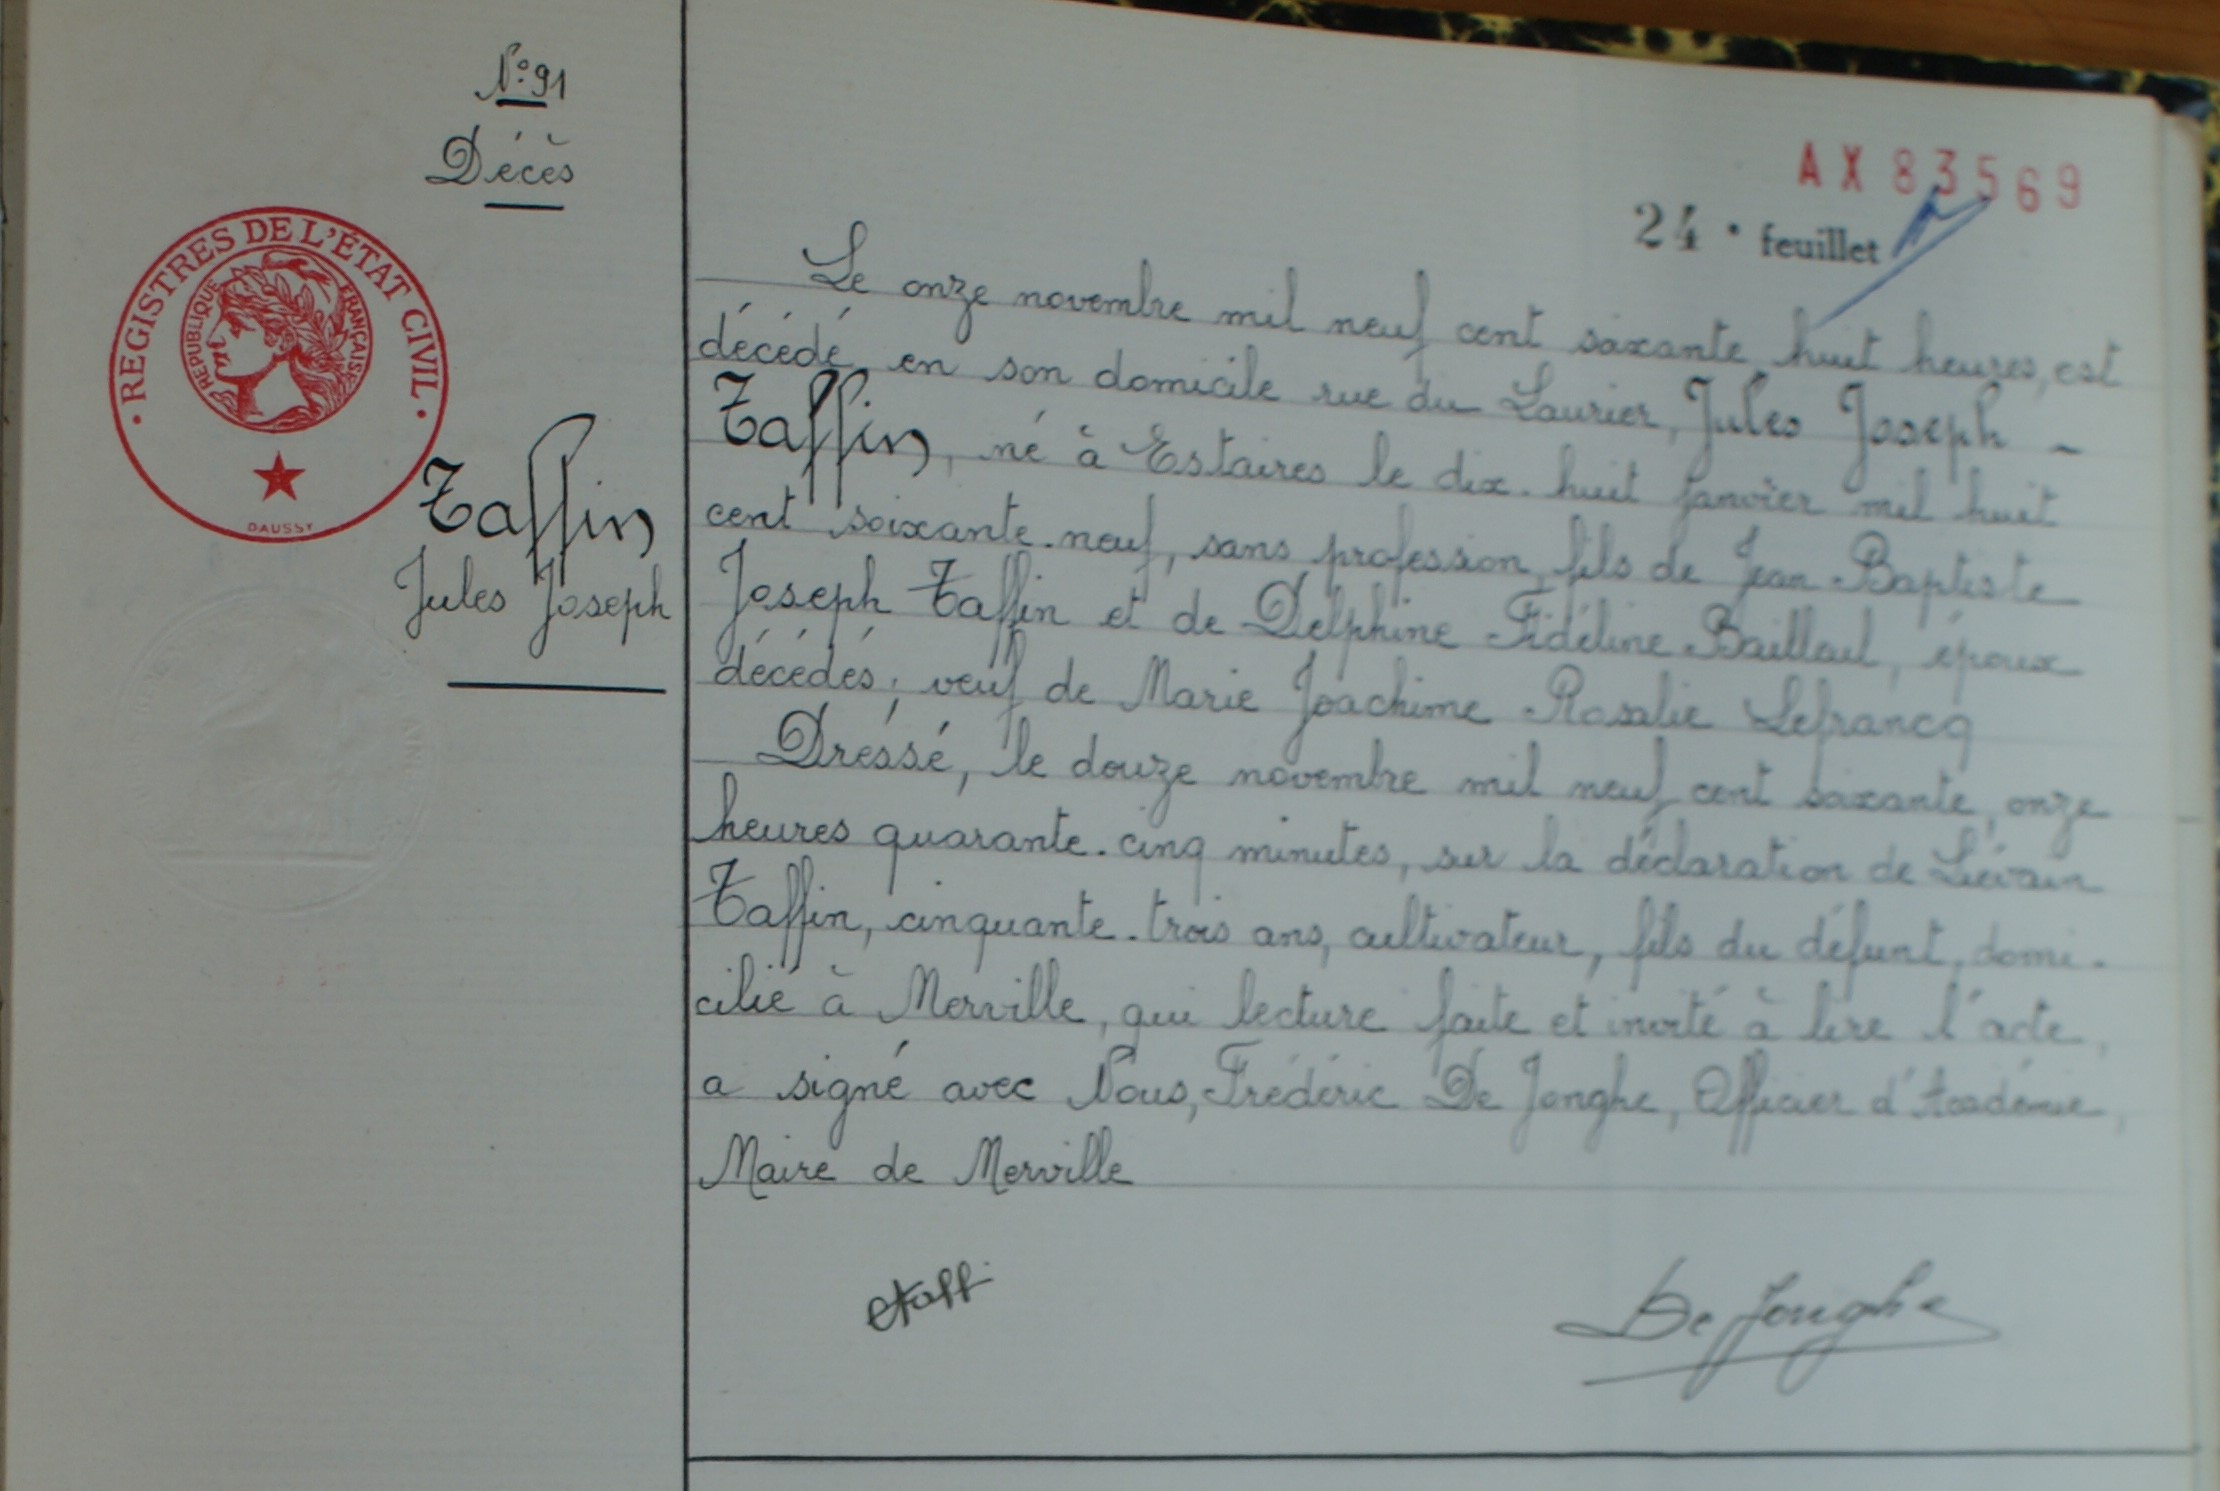 N° 91
Décès
REGISTRES DE L'ÉTAT CIVIL
RÉPUBLIQUE FRANÇAISE
DAUSSY
Taffin
Jules Joseph
AX 83569
24e feuillet
Le onze novembre mil neuf cent soixante, huit heures, est
décédé, en son domicile rue du Laurier, Jules Joseph
Taffin, né à Estaires le dix-huit janvier mil huit
cent soixante-neuf, sans profession, fils de Jean-Baptiste
Joseph Taffin et de Delphine Fidéline Bailleul, époux
décédés; veuf de Marie Joachime Rosalie Lefrancq
Dressé, le douze novembre mil neuf cent soixante, onze
heures quarante-cinq minutes, sur la déclaration de Liévain
Taffin, cinquante-trois ans, cultivateur, fils du défunt, domi-
cilié à Merville, qui lecture faite et invité à lire l'acte,
a signé avec Nous, Frédéric De Jonghe, Officier d'Académie,
Maire de Merville
De Jonghe